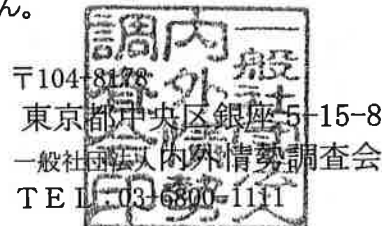 ん。
〒104-8178
東京都中央区銀座5-15-8
一般社団法人内外情勢調査会
TEL:03-6800-1111
一般社団法人
内外情勢
調査会印